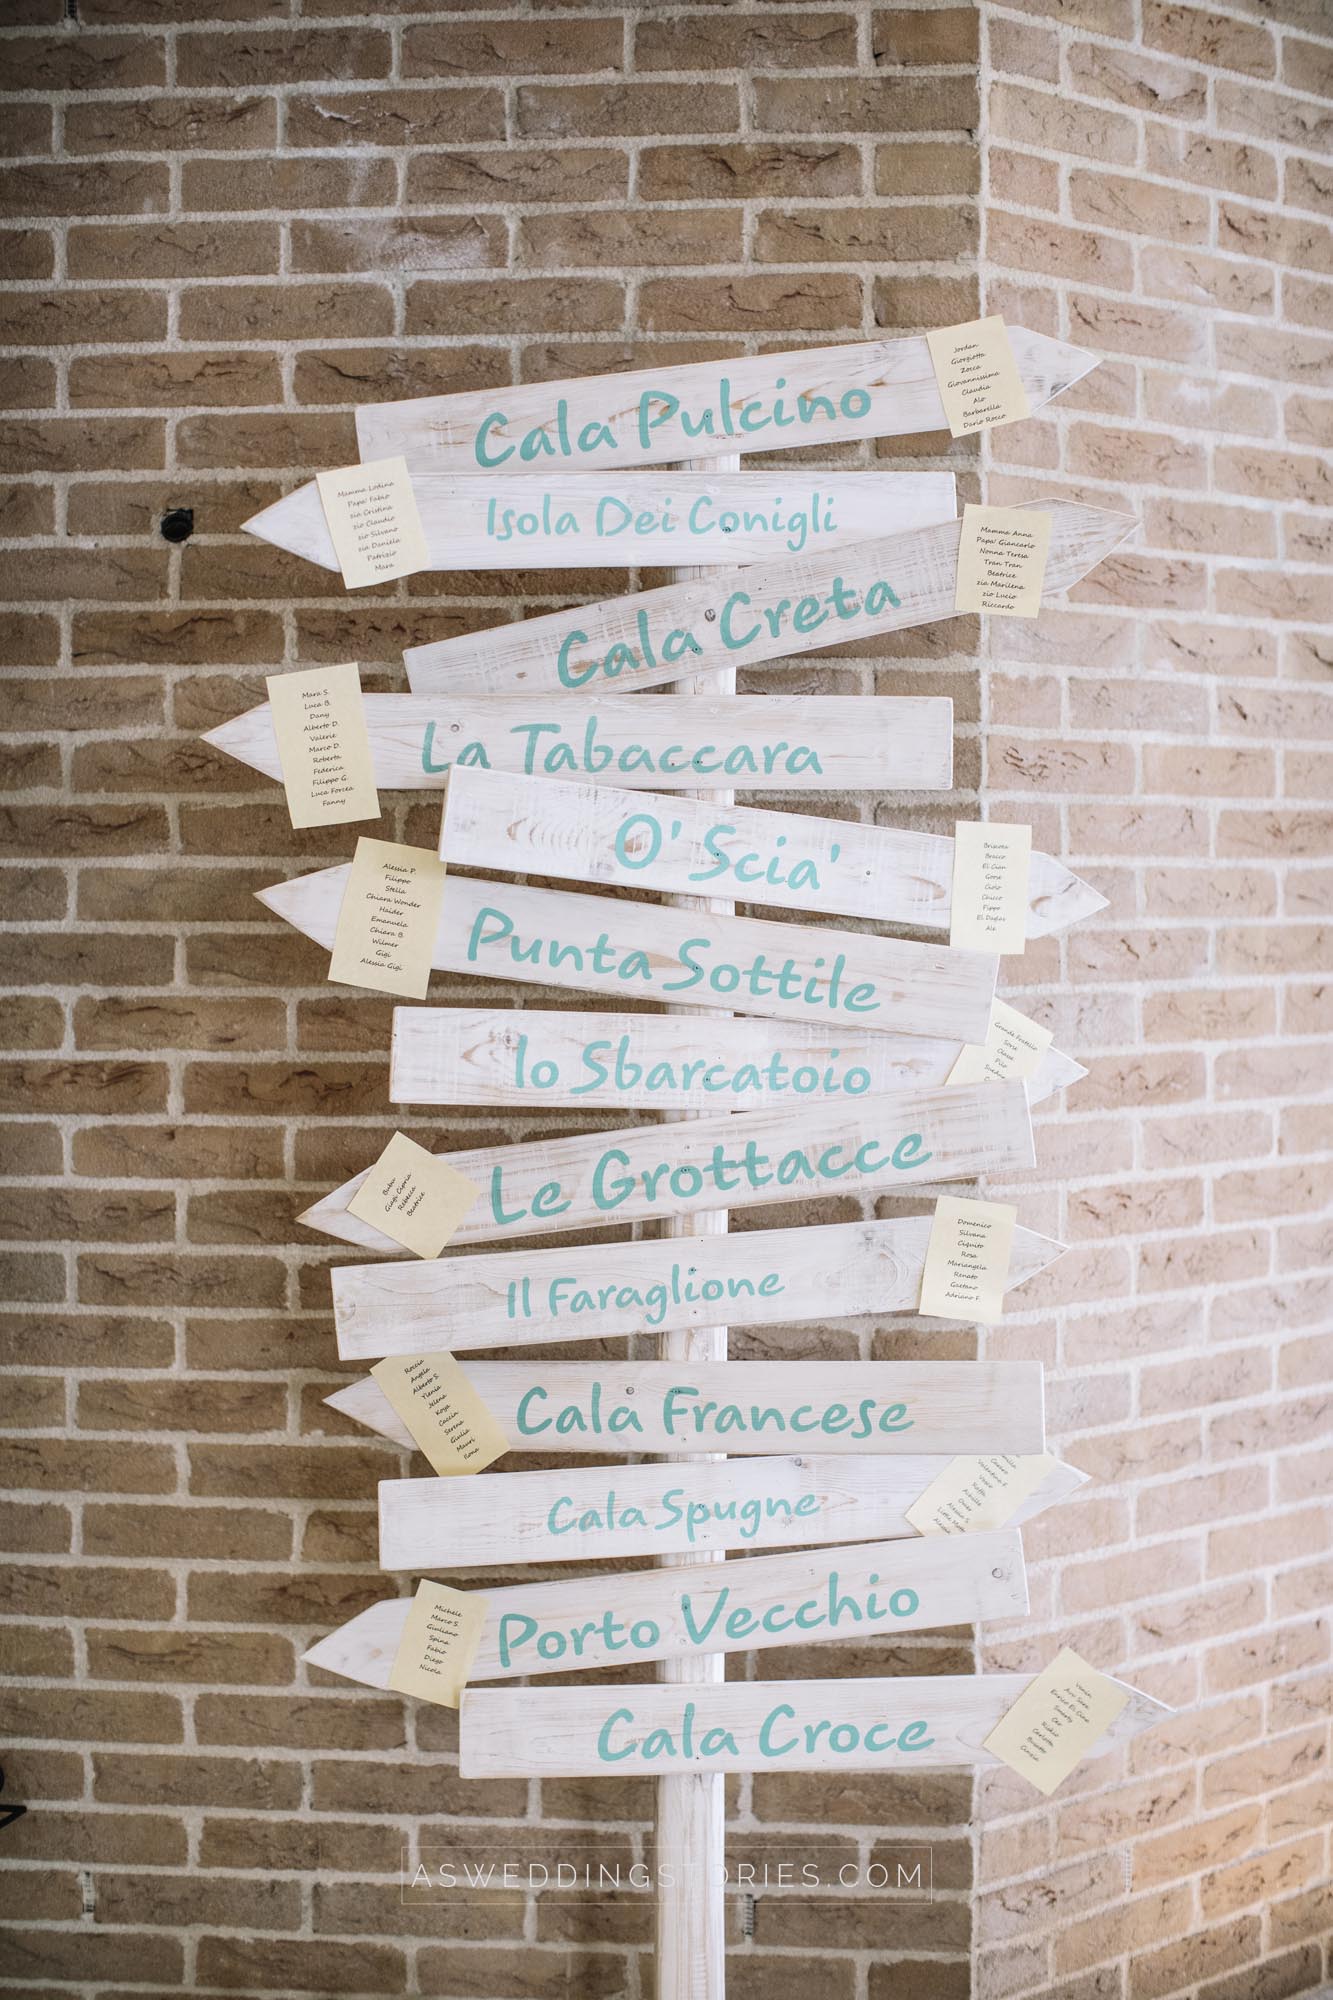 Cala Pulcino
Jordan
Giorgiotta
Zocca
Giovannissima
Claudia
Alo
Barbarella
Dario Rocco
Isola Dei Conigli
Mamma Lodina
Papa' Fabio
zia Cristina
zio Claudio
zio Silvano
zia Daniela
Patrizio
Mara
Cala Creta
Mamma Anna
Papa' Giancarlo
Nonna Teresa
Tran Tran
Beatrice
zia Marilena
zio Lucio
Riccardo
La Tabaccara
Mara S.
Luca B.
Dany
Alberto D.
Valerie
Marco D.
Roberta
Federica
Filippo G.
Luca Forcea
Fanny
O' Scia'
Briscola
Bracco
El Cian
Goose
Ciolo
Chicco
Fippo
Ale
Punta Sottile
Alessia P.
Filippo
Stella
Chiara Wonder
Haider
Emanuela
Chiara B.
Wilmer
Gigi
Alessia Gigi
lo Sbarcatoio
Grande Fratello
Pilo
Le Grottacce
Buba
Giugi Cipria
Rebecca
Beatrice
Il Faraglione
Domenico
Silvana
Ciquito
Rosa
Mariangela
Renato
Gaetano
Adriano F.
Cala Francese
Roccia
Angela
Alberto S.
Ylenia
Jelena
Koya
Caccia
Serena
Giulia
Mauri
Ilona
Cala Spugne
Valentina F.
Achille
Omar
Alessio S.
Little Matte
Alessia
Porto Vecchio
Michele
Marco S.
Giuliano
Spina
Fabio
Diego
Nicola
Cala Croce
Smarty
Carlotta
Cinzia
ASWEDDINGSTORIES.COM